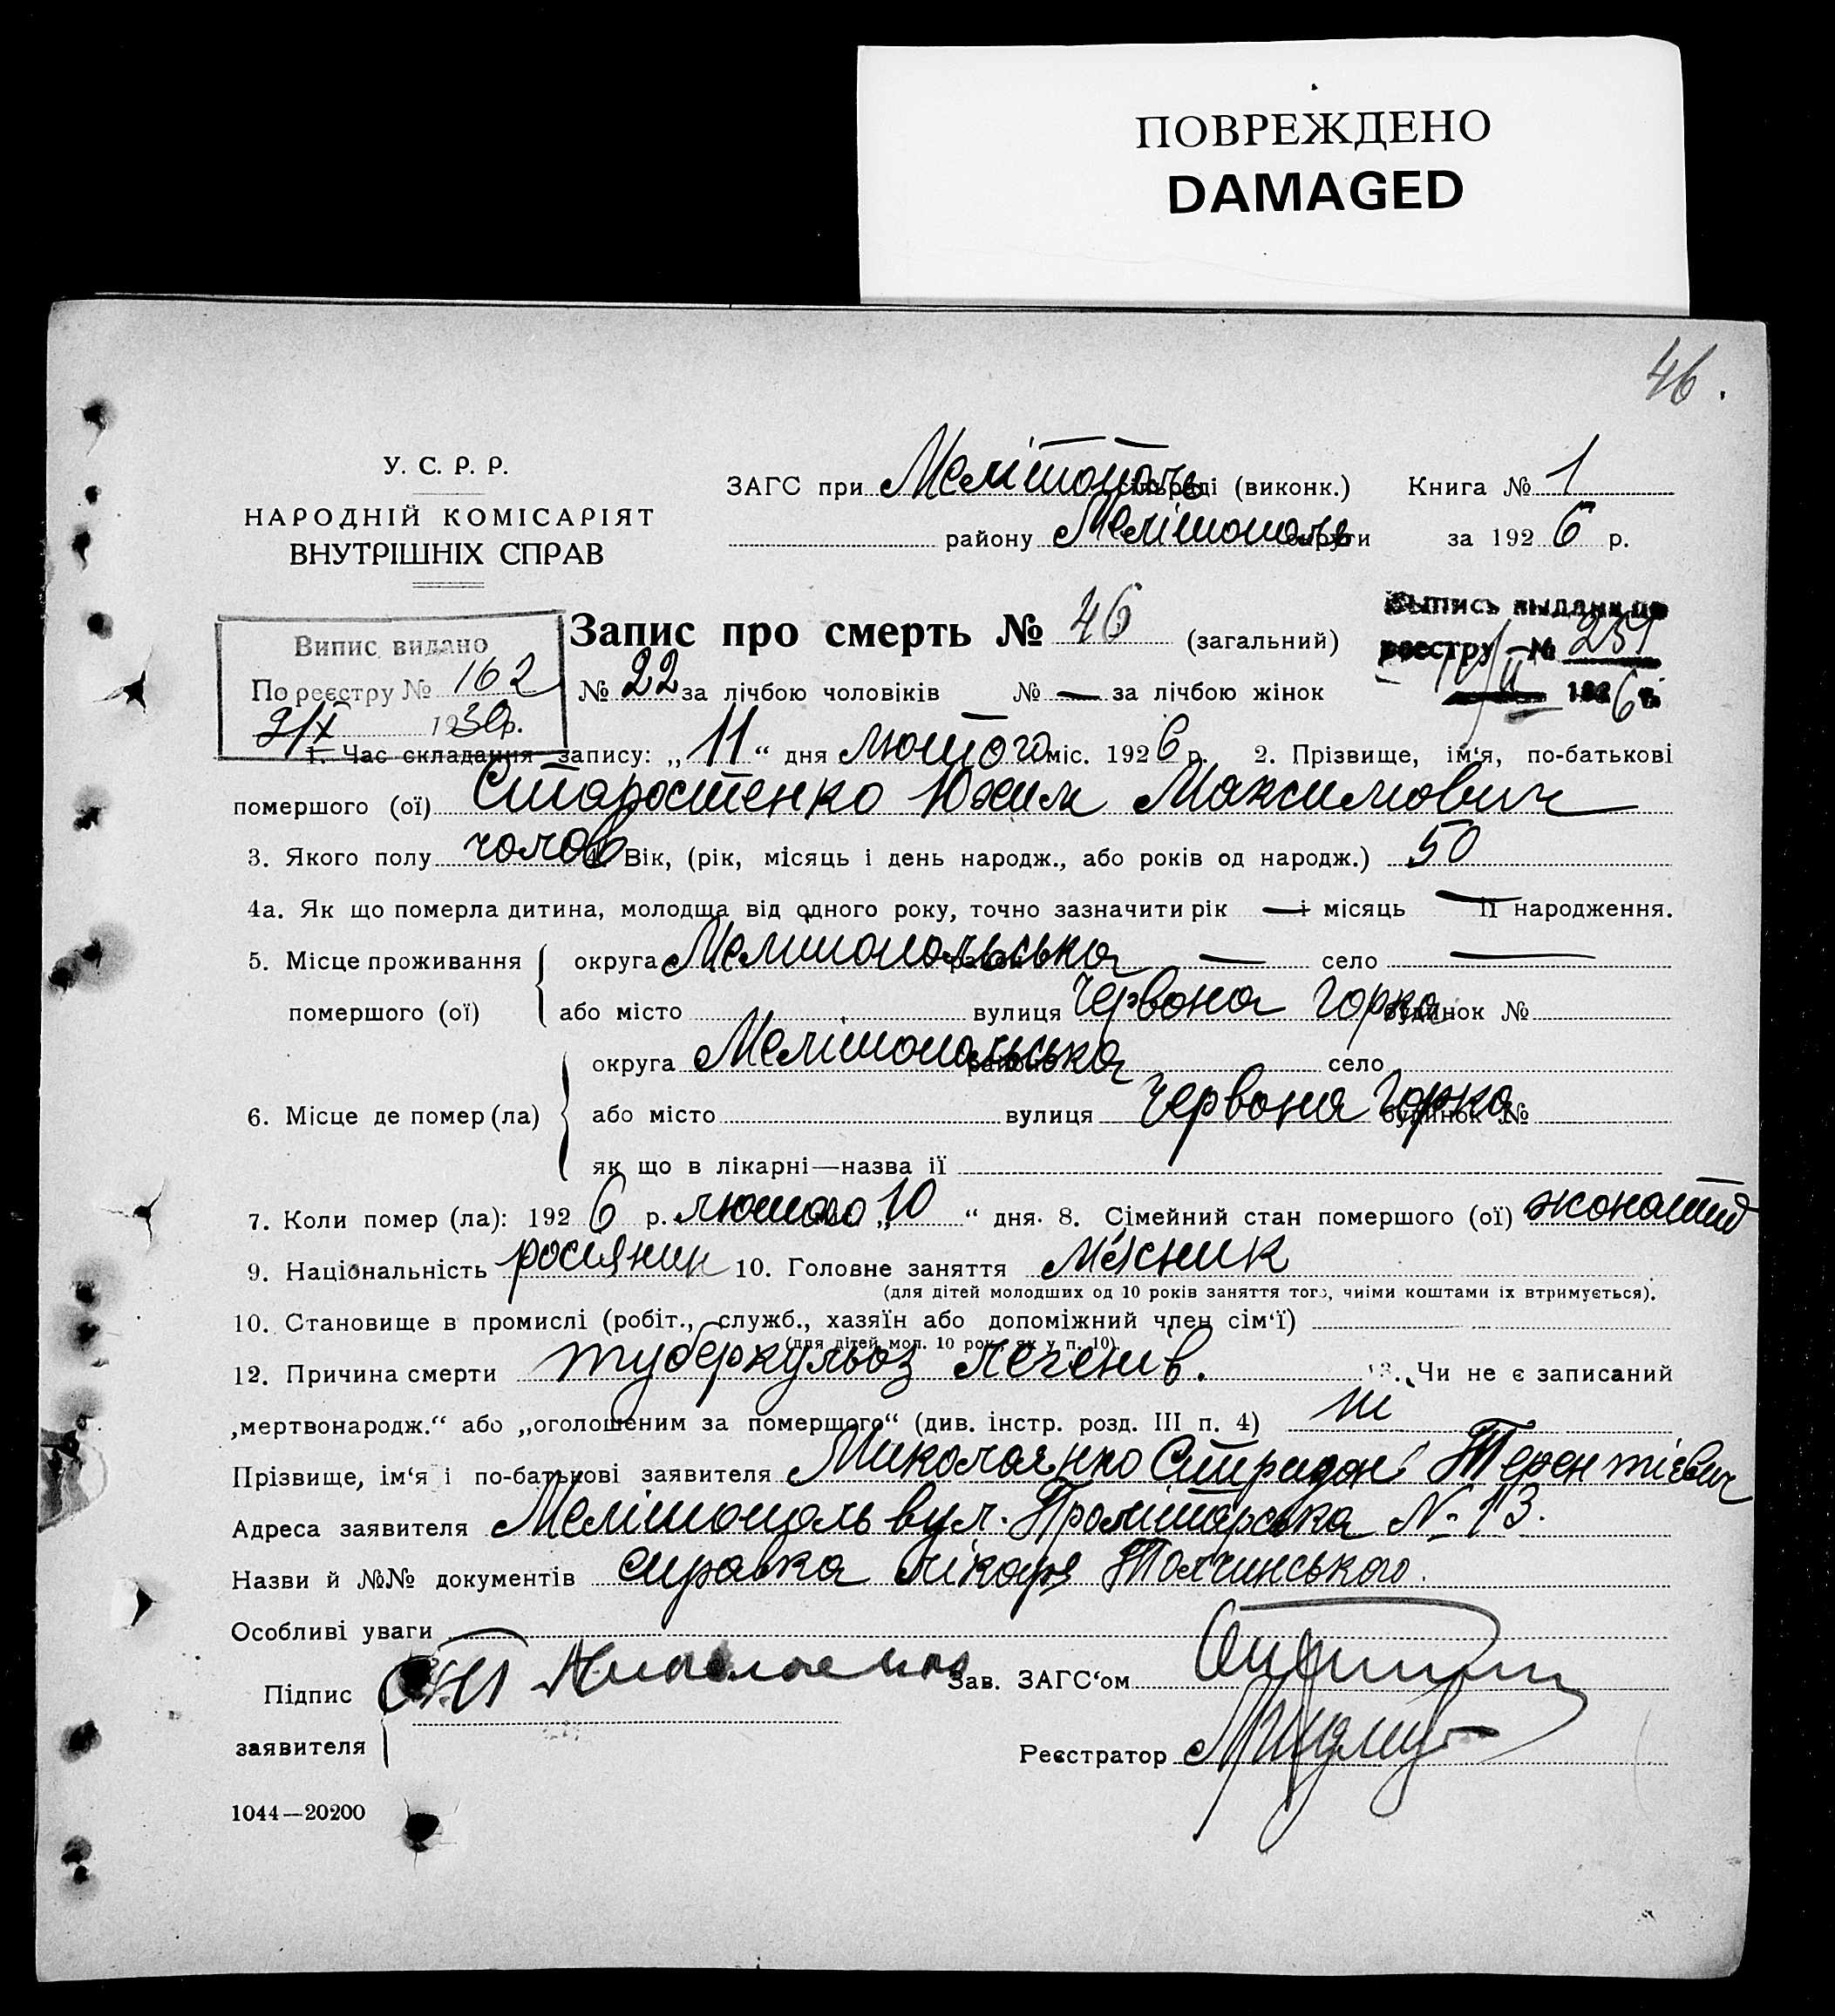 ПОВРЕЖДЕНО
DAMAGED
46.
У. С. Р. Р.
НАРОДНІЙ КОМІСАРІЯТ
ВНУТРІШНІХ СПРАВ
ЗАГС при Мелітополь сільраді (виконк.) Книга № 1
району Мелітополь округи за 1926 р.
Випис видано
По реєстру № 162
2/X 1930р.
Запис про смерть № 46 (загальний)
Выпись выдана по
реестру № 259
1926 г.
№ 22 за лічбою чоловіків № — за лічбою жінок
1. Час складання запису: „11“ дня Лютого міс. 1926 р. 2. Прізвище, ім‘я, по-батькові
помершого (ої) Старостенко Юхим Максимович
3. Якого полу чолов 4. Вік, (рік, місяць і день народж., або років од народж.) 50
4а. Як що померла дитина, молодща від одного року, точно зазначити рік — і місяць — її народження.
5. Місце проживання помершого (ої) округа Мелітопольська район — село —
або місто вулиця Червона Горка будинок №
6. Місце де помер (ла) округа Мелітопольська район село
або місто вулиця Червона Горка будинок №
як що в лікарні—назва її
7. Коли помер (ла): 1926 р. лютого „10“ дня. 8. Сімейний стан помершого (ої) жонатий
9. Національність росіянин 10. Головне заняття Мясник
(для дітей молодших од 10 років заняття того, чиїми коштами їх втримується).
10. Становище в промислі (робіт., служб., хазяїн або допоміжний член сім‘ї)
(для дітей мол. 10 рок., як у п. 10)
12. Причина смерти туберкульоз легенів. 13. Чи не є записаний
„мертвонародж.“ або „оголошеним за помершого“ (див. інстр. розд. III п. 4) ні
Прізвище, ім‘я і по-батькові заявителя Миколаянко Спиридон Терентієвич
Адреса заявителя Мелітополь вул. Пролітарська № 13.
Назви й №№ документів справка лікаря Толчинського.
Особливі уваги
Підпис заявителя
Зав. ЗАГС‘ом
Реєстратор
1044—20200